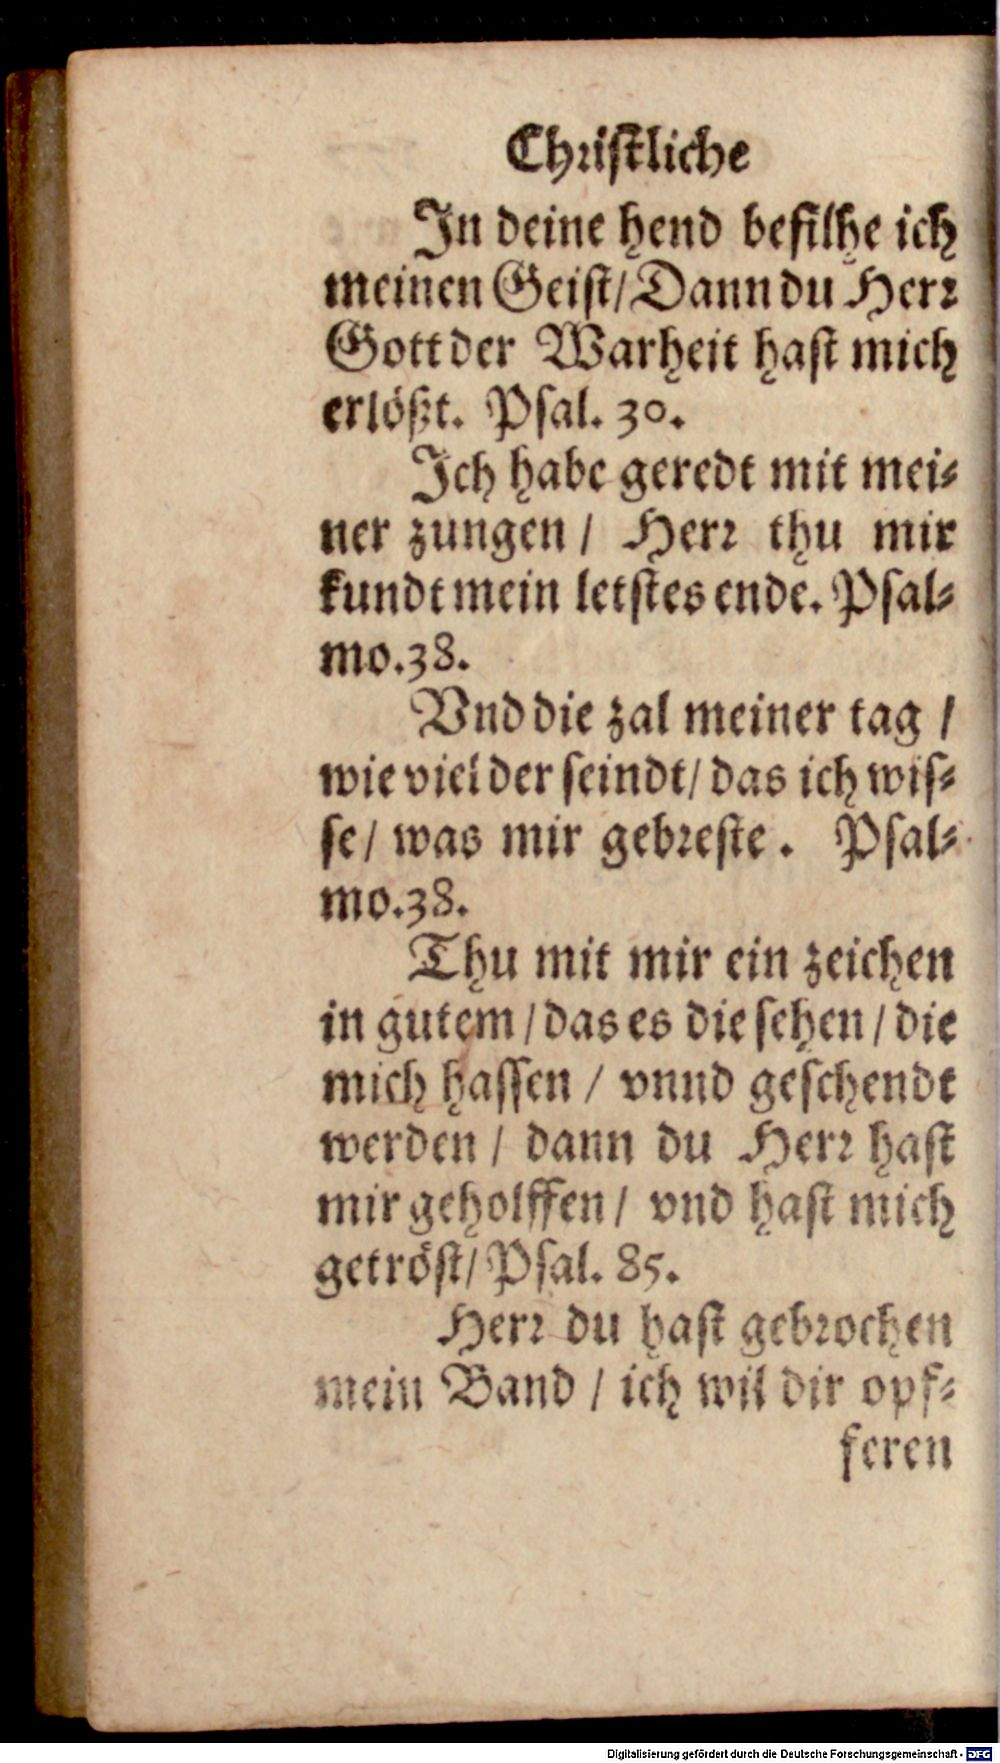 Christliche
In deine hend befilhe ich
meinen Geist/ Dann du Herr
Gott der Warheit hast mich
erlößt. Psal. 30.
Ich habe geredt mit mei⸗
ner zungen / Herr thu mir
kundt mein letstes ende. Psal⸗
mo. 38.
Vnd die zal meiner tag /
wie viel der seindt/ das ich wis⸗
se/ was mir gebreste. Psal⸗
mo. 38.
Thu mit mir ein zeichen
in gutem / das es die sehen / die
mich hassen / vnnd geschendt
werden / dann du Herr hast
mir geholffen/ vnd hast mich
getröst/ Psal. 85.
Herr du hast gebrochen
mein Band / ich wil dir opf⸗
feren
Digitalisierung gefördert durch die Deutsche Forschungsgemeinschaft - DFG